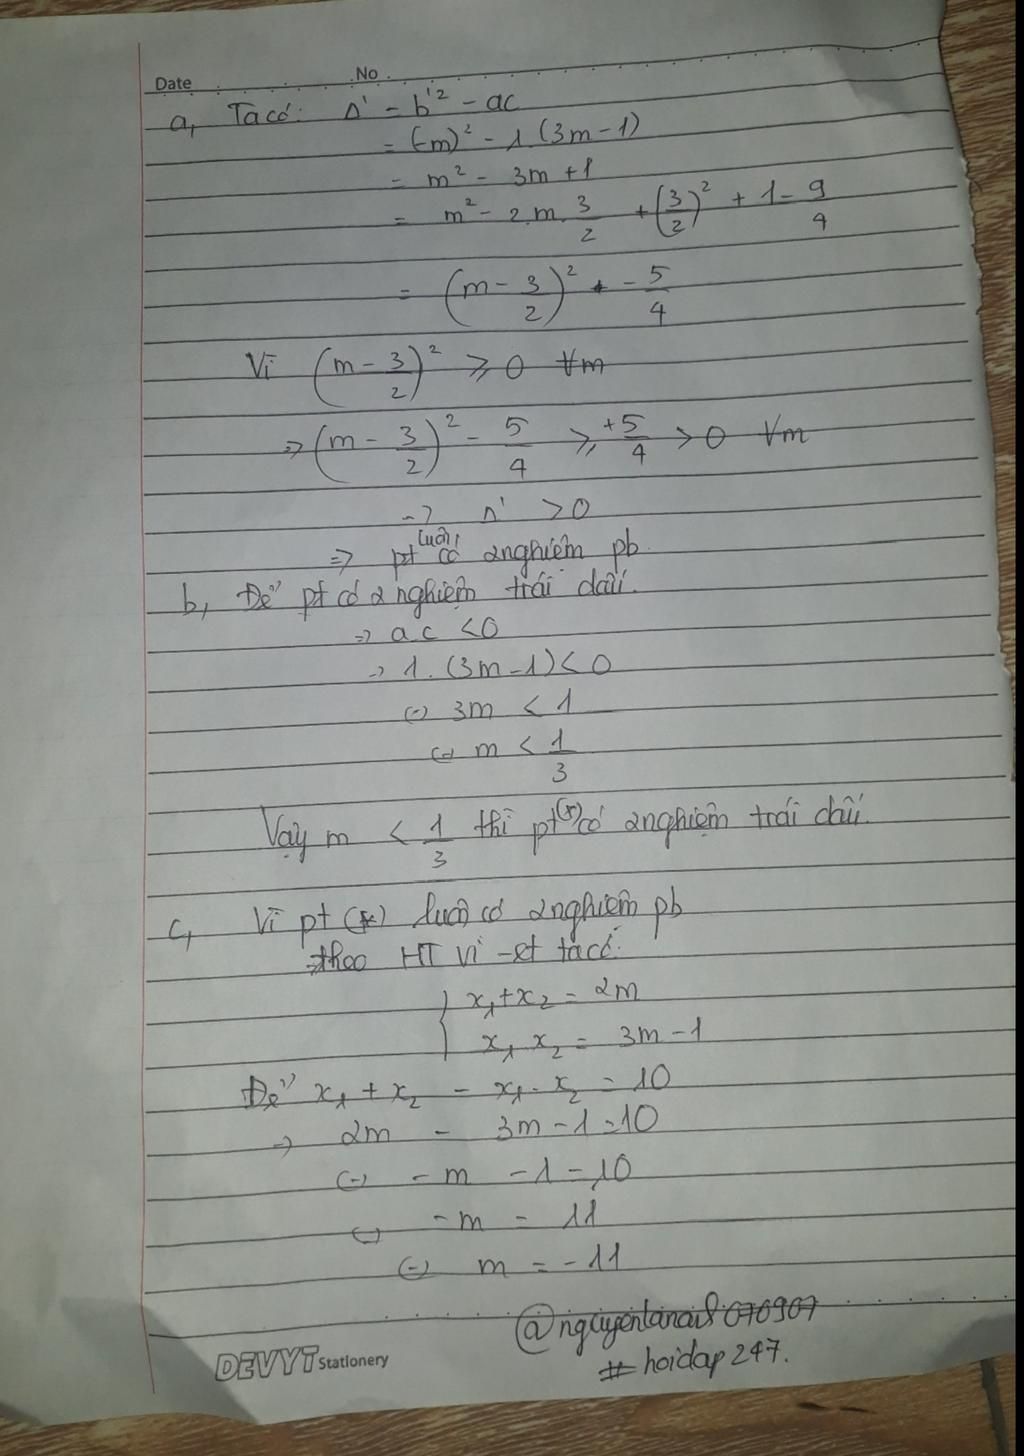 Date No
a, Ta có: Δ' = b'² - ac
= (-m)² - 1.(3m-1)
= m² - 3m + 1
= m² - 2.m.3/2 + (3/2)² + 1 - 9/4
= (m - 3/2)² - 5/4
Vì (m - 3/2)² ⩾ 0 ∀m
=> (m - 3/2)² - 5/4 ⩾ +5/4 > 0 ∀m
-> Δ' > 0
=> pt luôn có 2 nghiệm pb.
b, Để pt có 2 nghiệm trái dấu.
=> a.c < 0
-> 1.(3m-1) < 0
(=) 3m < 1
(=) m < 1/3
Vậy m < 1/3 thì pt(*) có 2 nghiệm trái dấu.
c, Vì pt (*) luôn có 2 nghiệm pb
=> theo HT Vi-ét ta có:
{ x₁ + x₂ = 2m
x₁ x₂ = 3m - 1
Để x₁ + x₂ - x₁.x₂ = 10
-> 2m - 3m - 1 = 10
(=) -m - 1 = 10
(=) -m = 11
(=) m = -11
#hoidap247.
DEVYT Stationery